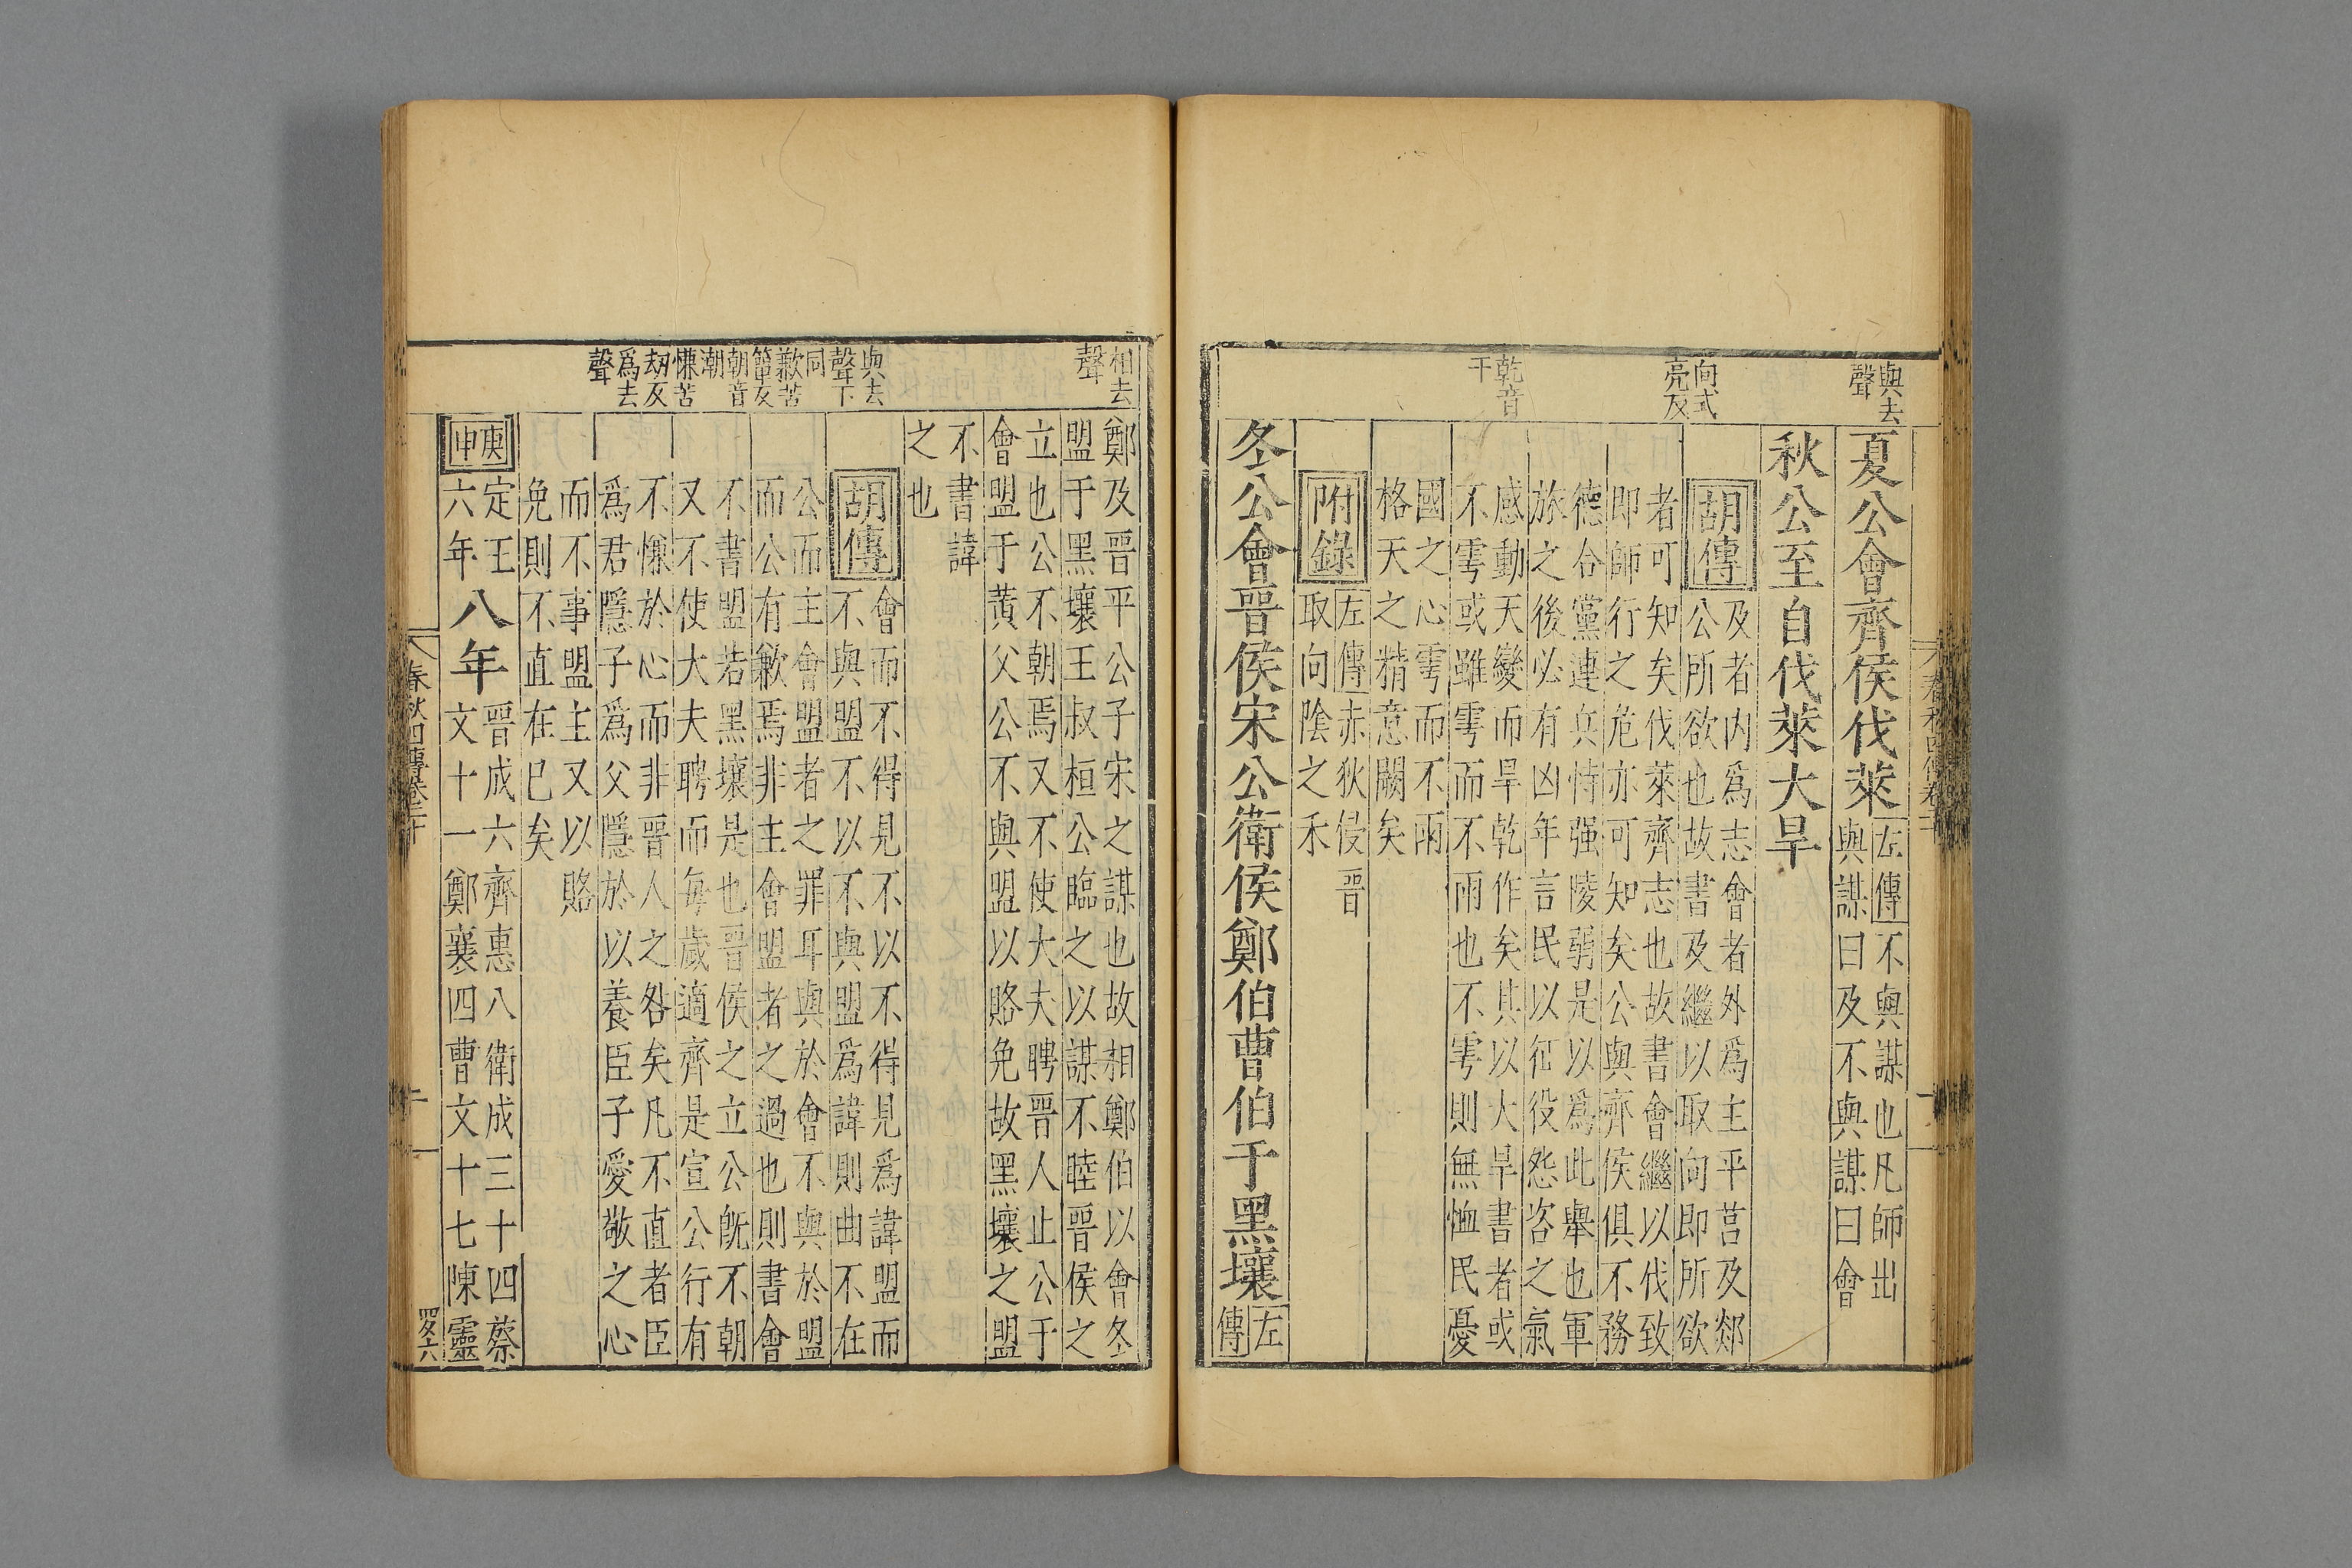 與去
聲
向式
亮反
乾音
干
夏公會齊侯伐萊
左傳不與謀也凡師出
與謀曰及不與謀曰會
秋公至自伐萊大旱
胡傳
及者內爲志會者外爲主平莒及郯
公所欲也故書及繼以取向即所欲
者可知矣伐萊齊志也故書會繼以伐致
即師行之危亦可知矣公與齊侯俱不務
德合黨連兵恃强陵弱是以爲此舉也軍
旅之後必有凶年言民以征役怨咨之氣
感動天變而旱乾作矣其以大旱書者或
不雩或雖雩而不雨也不雩則無恤民憂
國之心雩而不雨
格天之精意闕矣
附錄
左傳赤狄侵晉
取向陰之禾
冬公會晉侯宋公衛侯鄭伯曹伯于黑壤
左
傳
相去
聲
與去
聲下
同
歉苦
簟反
朝音
潮
慊苦
刼反
爲去
聲
鄭及晉平公子宋之謀也故相鄭伯以會冬
盟于黑壤王叔桓公臨之以謀不睦晉侯之
立也公不朝焉又不使大夫聘晉人止公于
會盟于黃父公不與盟以賂免故黑壤之盟
不書諱
之也
胡傳
會而不得見不以不得見爲諱盟而
不與盟不以不與盟爲諱則曲不在
公而主會盟者之罪耳與於會不與於盟
而公有歉焉非主會盟者之過也則書會
不書盟若黑壤是也晉侯之立公旣不朝
又不使大夫聘而每歲適齊是宣公行有
不慊於心而非晉人之咎矣凡不直者臣
爲君隱子爲父隱於以養臣子愛敬之心
而不事盟主又以賂
免則不直在已矣
庚
申
定王
六年
八年
晉成六齊惠八衛成三十四蔡
文十一鄭襄四曹文十七陳靈
春秋四傳卷二十